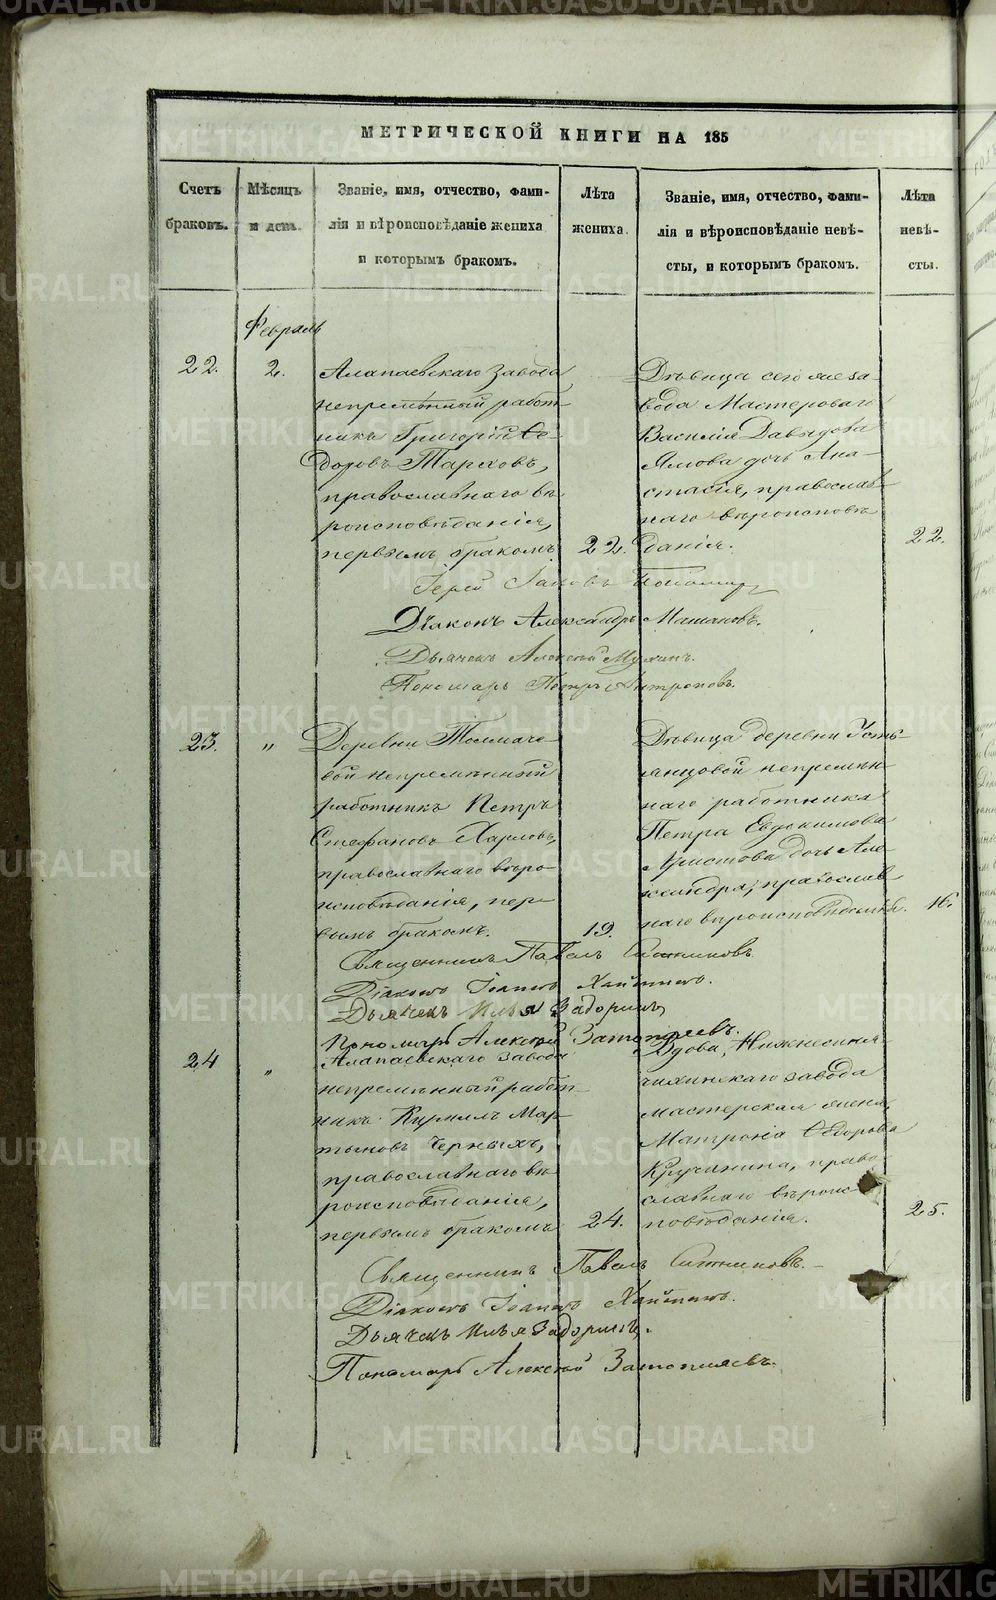 МЕТРИЧЕСКОЙ КНИГИ НА 185
Счетъ
браковъ.
Мѣсяцъ
и день.
Званіе, имя, отчество, фами-
лія и вѣроисповѣданіе жениха
и которымъ бракомъ.
Лѣта
жениха.
Званіе, имя, отчество, фами-
лія и вѣроисповѣданіе невѣ-
сты, и которымъ бракомъ.
Лѣта
невѣ-
сты.
Февраль
22.
2.
Алапаевскаго завода
непремѣнный работ
никъ Григорій Ѳе-
доровъ Тарховъ,
православнаго вѣ
роисповѣданія,
первымъ бракомъ
22.
Дѣвица сего же за-
вода Мастероваго
Василія Давыдова
дочь Ана-
стасія, православ
наго вѣроисповѣ
данія.
22.
Іерей Іаковъ
Діаконъ Александръ
Дьячекъ Алексѣй
Пономарь Петръ Антроповъ.
23.
"
Деревни Толмаче
вой непремѣнный
работникъ Петръ
Стефановъ Харловъ,
православнаго вѣро
исповѣданія, пер
вымъ бракомъ.
19.
Дѣвица деревни Усть
янцовой непремѣн
наго работника
Петра Евдокимова
дочь Але
ксандра, православ
наго вѣроисповѣданія.
16.
Священникъ Павелъ Ситниковъ
Діаконъ Іоаннъ
Дьячекъ Илья Задоринъ,
Пономарь Алексѣй Затопляевъ.
24
"
Алапаевскаго завода
непремѣнный работ
никъ Кирилъ Мар
тыновъ Черныхъ,
православнаго вѣ
роисповѣданія,
первымъ бракомъ
24.
Вдова, Нижнесиня
чихинскаго завода
мастерская жена,
Матрона Ѳедорова
Кручинина, право
славнаго вѣроис
повѣданія.
25.
Священникъ Павелъ Ситниковъ.
Діаконъ Іоаннъ
Дьячекъ Илья Задоринъ.
Пономарь Алексѣй Затопляевъ.
METRIKI.GASO-URAL.RU